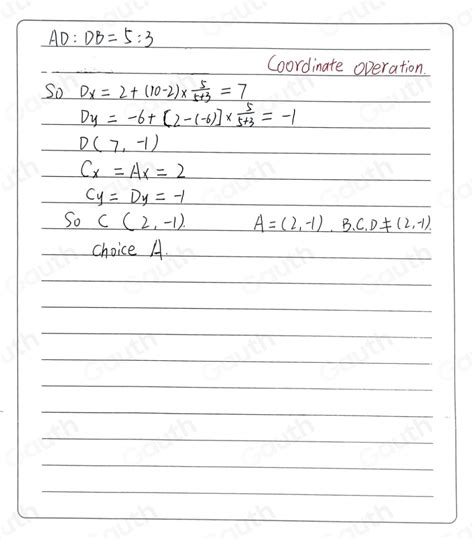 AD : DB = 5 : 3
Coordinate operation.
So Dx = 2 + (10-2) × 5/(5+3) = 7
Dy = -6 + [2-(-6)] × 5/(5+3) = -1
D(7, -1)
Cx = Ax = 2
Cy = Dy = -1
So C (2, -1). A = (2, -1). B.C.D ≠ (2, -1).
choice A.